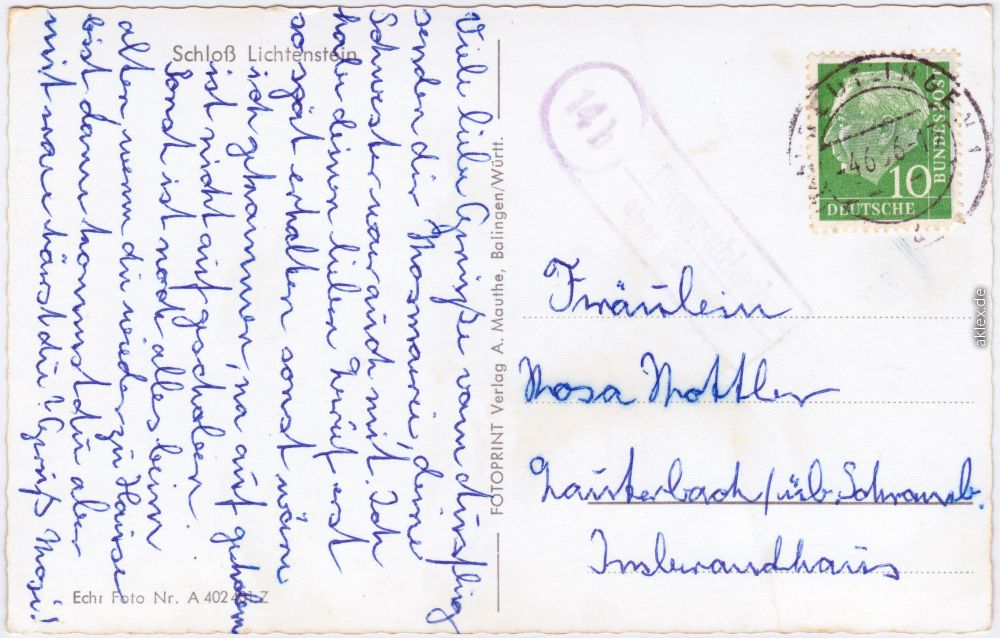 Schloß Lichtenstein
Viele liebe Grüße vom Ausflug
senden dir Rosmarie, deine
Schwester war auch mit. Ich
habe deinen lieben Brief erst
so spät erhalten sonst wäre
ich gekommen, na auf gehoben
ist nicht aufgschoben.
Sonst ist noch alles beim
alten, wenn du wieder zu Hause
bist dann kommst du aber
mit was hörst du! Gruß Rosi!
Echt Foto Nr. A 402401 Z
FOTOPRINT Verlag A. Mauthe, Balingen/Württ.
14b
10
DEUTSCHE
BUNDESPOST
Fräulein
Rosa Mottler
Lauterbach/üb. Schramb.
Imbrandhaus
aklex.de